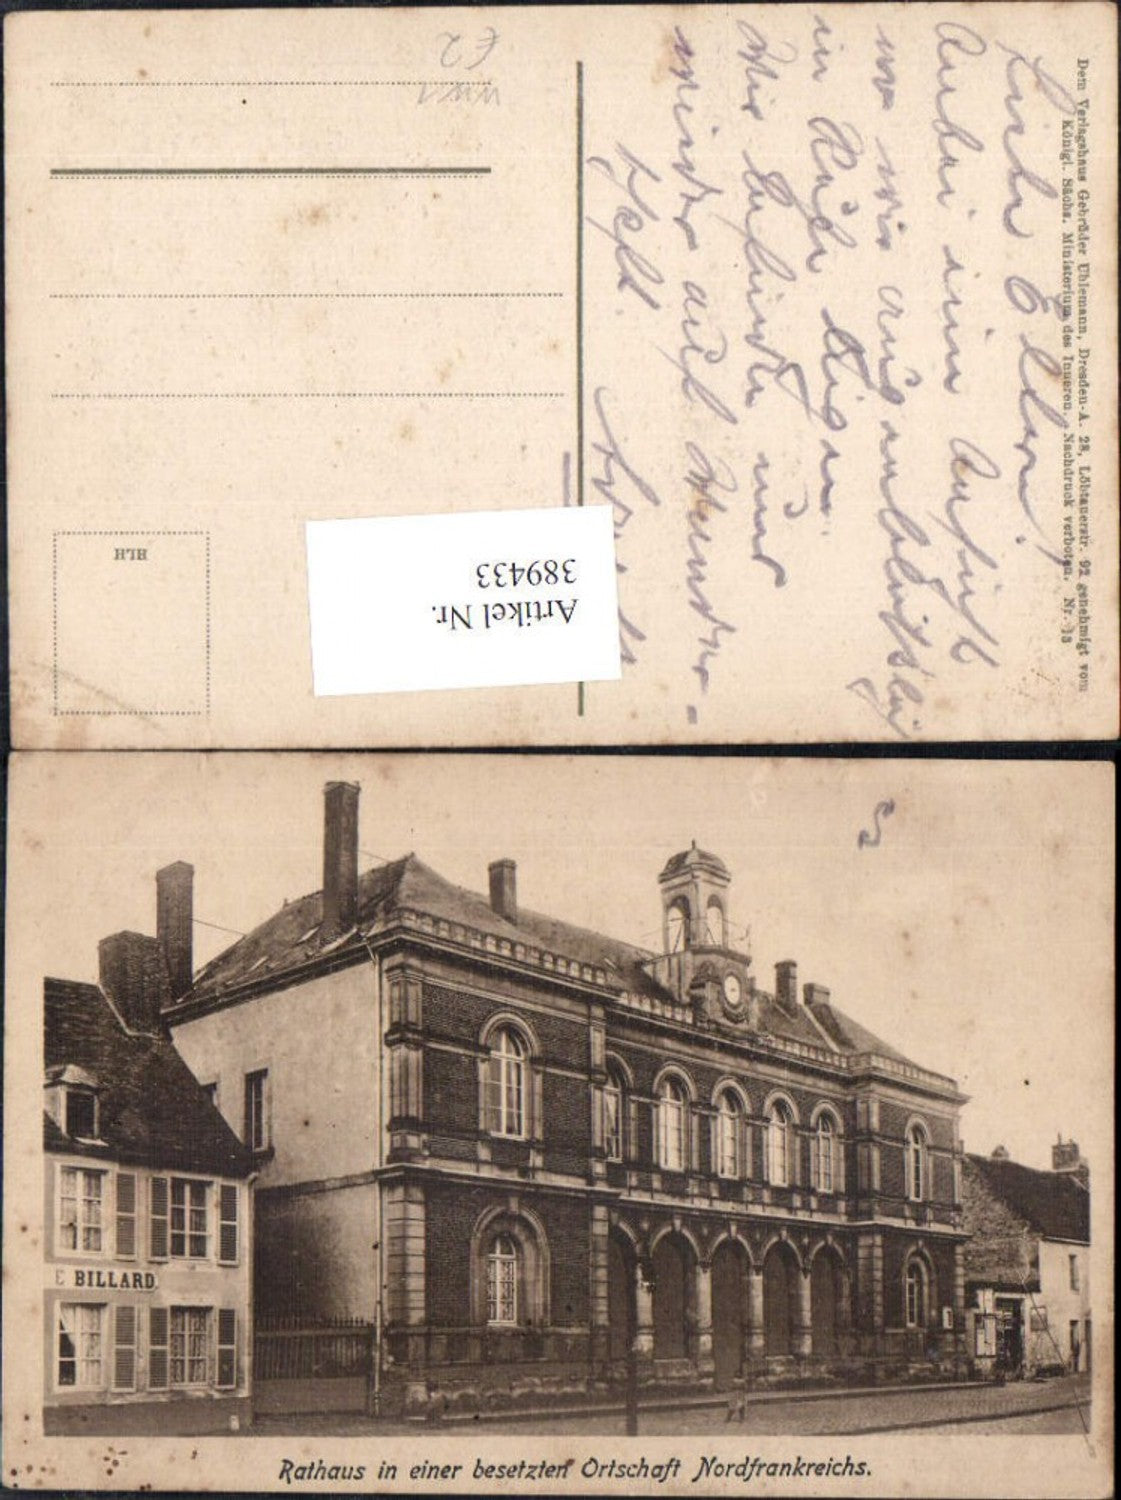 Dem Verlagshaus Gebrüder Uhlemann, Dresden-A. 28, Löbtauerstr. 92 genehmigt vom
Königl. Sächs. Ministerium des Inneren. Nachdruck verboten. Nr. 18
Liebe Eltern!
Anbei eine Ansicht
wo wir augenblicklich
in Ruhe liegen.
Wir befinden uns
wieder auf
£2
WW1
HLH
Artikel Nr.
389433
E BILLARD
Rathaus in einer besetzten Ortschaft Nordfrankreichs.